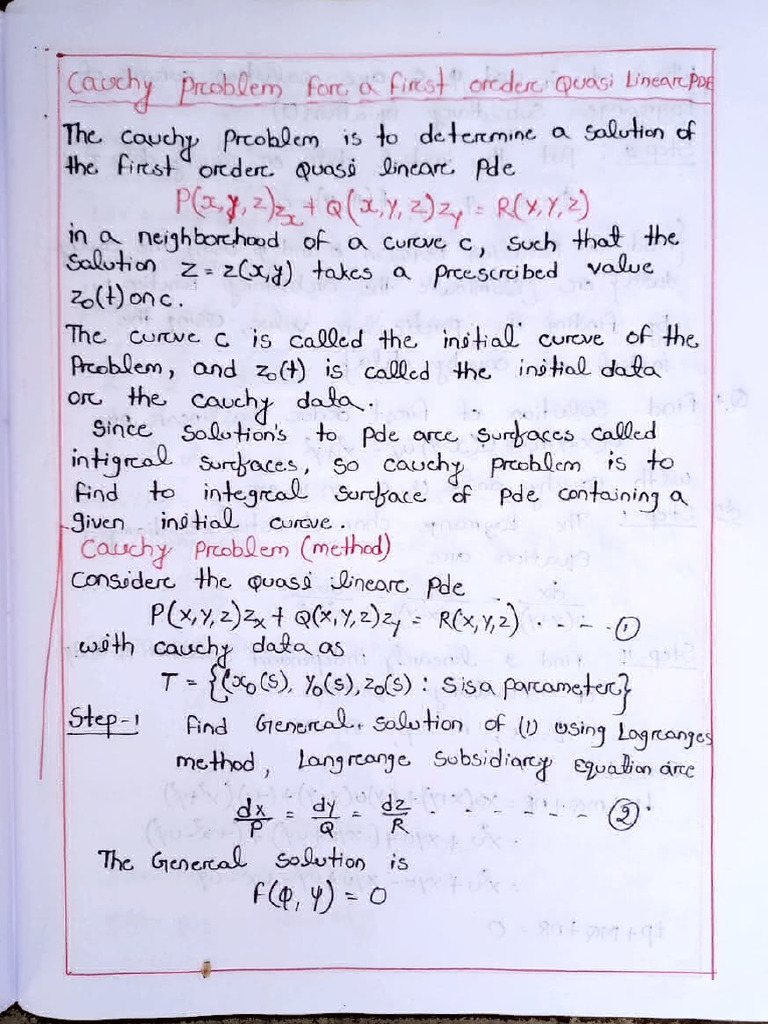 Cauchy problem for a first order Quasi Linear PDE
The cauchy Problem is to determine a solution of
the first order Quasi linear Pde
P(x,y,z)zₓ + Q(x,y,z)z_y = R(x,y,z)
in a neighborhood of a curve c, such that the
solution z = z(x,y) takes a prescribed value
z₀(t) on c.
The curve c is called the initial curve of the
Problem, and z₀(t) is called the initial data
or the cauchy data.
Since solution's to Pde are surfaces called
intigral surfaces, so cauchy problem is to
find to integral surface of Pde containing a
given initial curve.
Cauchy Problem (method)
Consider the quasi linear Pde
P(x,y,z)zₓ + Q(x,y,z)z_y = R(x,y,z) - - - ①
with cauchy data as
T = {(x₀(s), y₀(s), z₀(s) : s is a parameter}
Step-1 find General solution of (1) using Lagranges
method, Langrange Subsidiary Equation are
dx/P = dy/Q = dz/R - - - - - - ②
The General solution is
f(φ, ψ) = 0